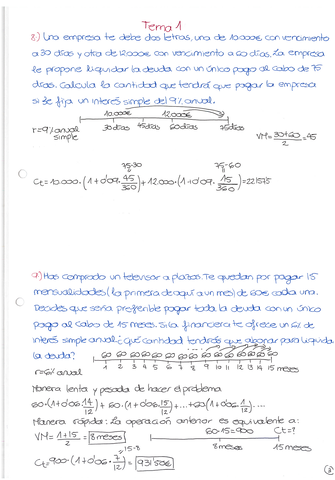 Tema 1
8) Una empresa te debe dos letras, una de 10.000€ con vencimiento
a 30 días y otra de 12000€ con vencimiento a 60 días. La empresa
te propone liquidar la deuda con un único pago al cabo de 75
días. Calcula la cantidad que tendrá que pagar la empresa
si se fija un interés simple del 9% anual.
10.000€ 12000€
r=9% anual
simple
30días 45días 60días 75días
VM= 30+60/2 = 45
75-30 75-60
Ct=10.000·(1+0'09·45/360)+12.000·(1+0'09·15/360)=22157'5
9) Has comprado un televisor a plazos. Te quedan por pagar 15
mensualidades (la primera de aquí a un mes) de 60€ cada una.
Decides que sería preferible pagar toda la deuda con un único
pago al cabo de 15 meses. Si la financiera te ofrece un 6% de
interés simple anual ¿qué cantidad tendrás que abonar para liquidar
la deuda?
60 60 60 60 60 60 60 60 60 60 60 60 60 60 60
r=6% anual
1 2 3 4 5 6 7 8 9 10 11 12 13 14 15 meses
Manera lenta y pesada de hacer el problema
60·(1+0'06·14/12)+60·(1+0'06·13/12)+...+60(1+0'06·1/12)....
Manera rápida: La operación anterior es equivalente a:
VM= 1+15/2 = 8meses
60·15=900 Ct=?
8meses 15meses
15-8
Ct=900·(1+0'06·7/12)= 931'50€